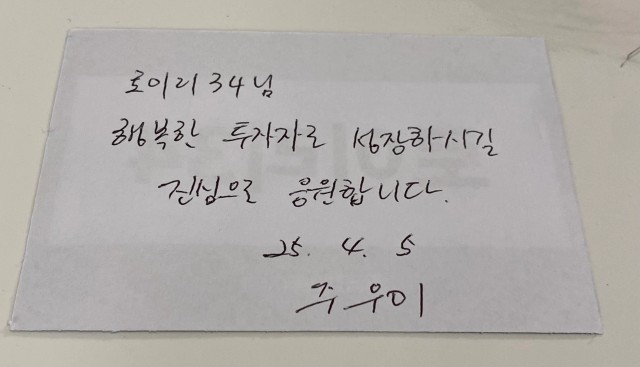 로이리34님
행복한 투자자로 성장하시길
진심으로 응원합니다.
25. 4. 5
주우이